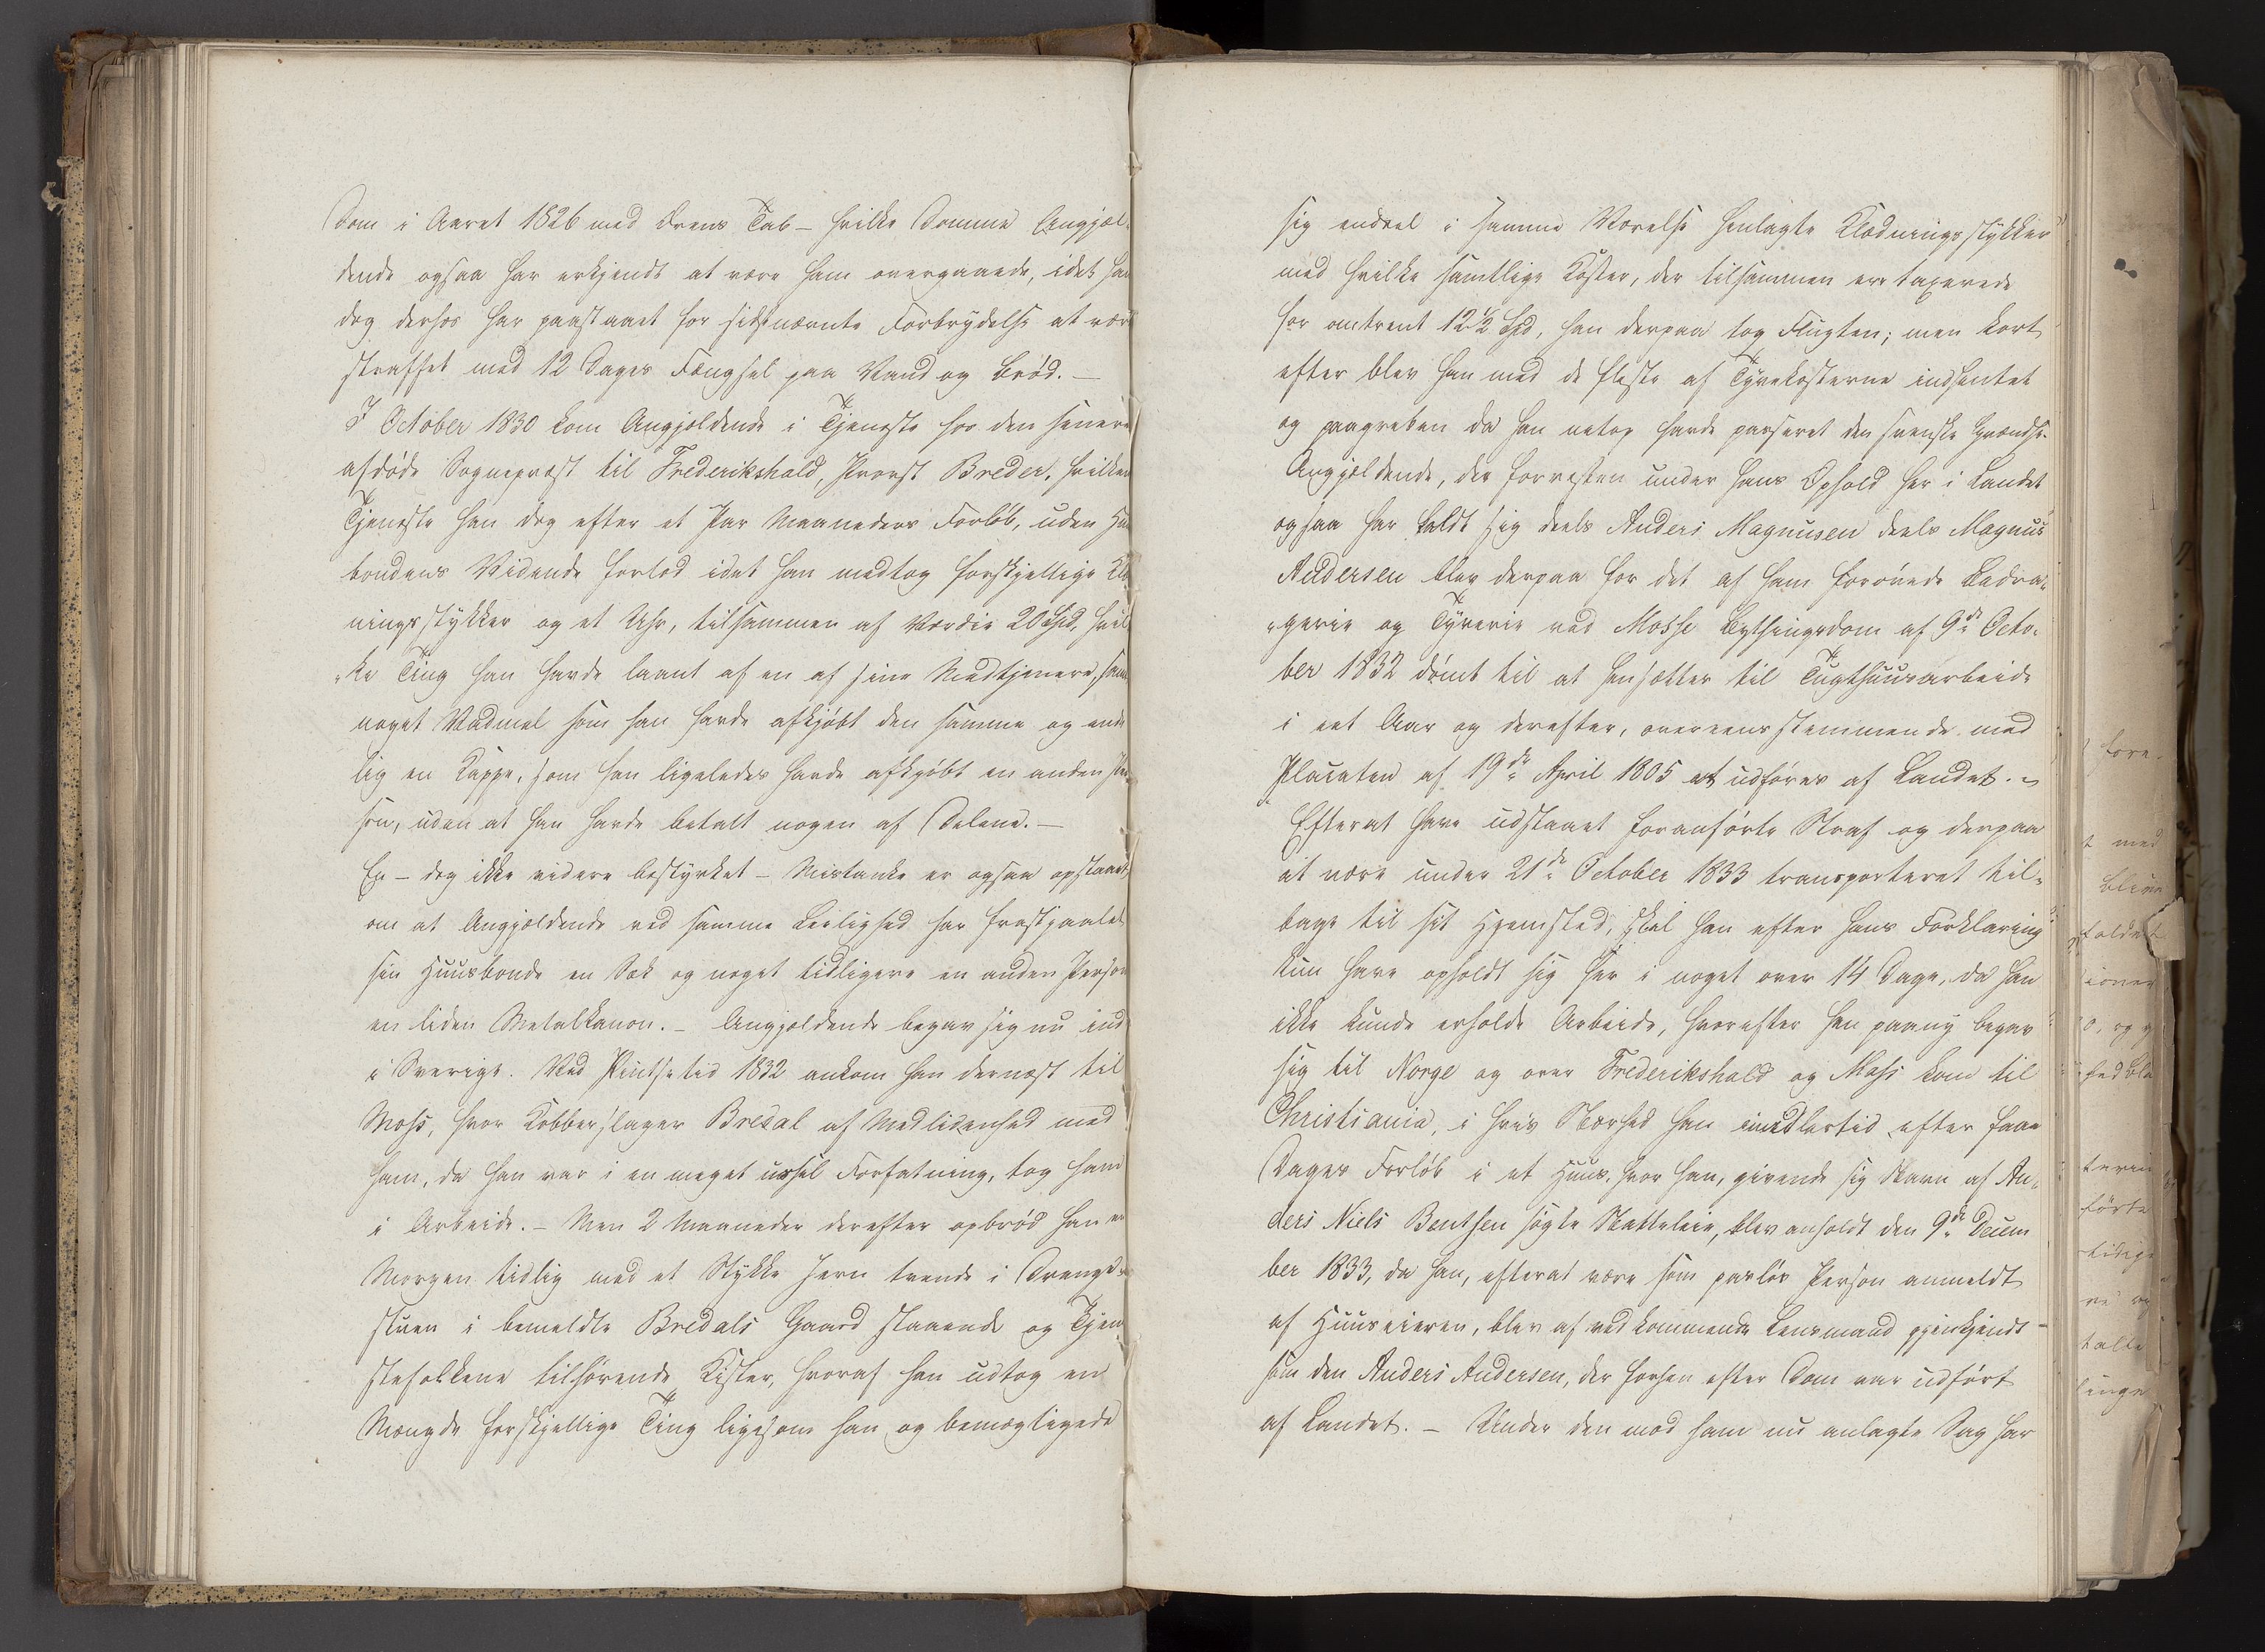 Dom i Aaret 1826 med Ærens Tab – hvilke Domme Angjæl-
dende ogsaa har erkjendt at være ham overgaaede, idet han
dog derhos har paastaaet for sidstnævnte Forbrydelse at være
straffet med 12 Dages Fængsel paa Vand og Brød. –
I October 1830 kom Angjældende i Tjeneste hos den senere
afdøde Sognepræst til Frederikshald, Provst Breder, hvilken
Tjeneste han dog efter et Par Maaneders Forløb, uden Huus
bondens Vidende forlod idet han medtog forskjellige Klæ
ningsstykker og et Uhr, tilsammen af Værdie 20 Spd, hvil
"ke Ting han havde laant af en af sine Medtjenere, samt
noget Vadmel som han havde afkjøbt den samme og ende
lig en Kappe, som han ligeledes havde afkjøbt en anden Per
son, uden at han havde betalt nogen af Delene. –
En – dog ikke videre bestyrket – Mistanke er ogsaa opstaaet
om at Angjældende ved samme Leilighed har frastjaalet
sin Huusbonde en Sæk og noget tidligere en anden Person
en liden Metalkanon. – Angjældende begav sig nu ind
i Sverige. Ved Pintsetid 1832 ankom han dernæst til
Moss, hvor Kobberslager Bredal af Medlidenhed med
ham, da han var i en meget ussel Forfatning, tog ham
i Arbeide. – Men 2 Maaneder derefter opbrød han en
Morgen tidlig med et Stykke Jern tvende i Drenge-
stuen i bemeldte Bredals Gaard staaende og Tjen
stefolkene tilhørende Kister, hvoraf han udtog en
Mængde forskjellige Ting ligesom han og bemægtigede
sig endeel i samme Værelse henlagte Klædningsstykker
med hvilke samtlige Koster, der tilsammen ere taxerede
for omtrent 12 1/2 Spd, han derpaa tog Flugten; men kort
efter blev han med de fleste af Tyvekosterne indhentet
og paagreben da han netop havde passeret den svenske Grændse.
Angjældende, der forresten under hans Ophold her i Landet
ogsaa har kaldt sig deels Anders Magnusen deels Magnus
Andersen blev derpaa for det af ham forøvede Bedra-
"gerie og Tyverie ved Mosse Bythingsdom af 9de Octo-
ber 1832 dømt til at hensættes til Tugthuusarbeide
i eet Aar og derefter, overeensstemmende med
Placaten af 19de April 1805 at udføres af Landet. –
Efterat have udstaaet foranførte Straf og derpaa
at være under 21de October 1833 transporteret til-
bage til sit Hjemsted, skal han efter hans Forklaring
kun have opholdt sig her i noget over 14 Dage, da han
ikke kunde erholde Arbeide, hvorefter han paany begav
sig til Norge og over Frederikshald og Moss kom til
Christiania, i hvis Nærhed han imidlertid efter faae
Dages Forløb i et Huus, hvor han, givende sig Navn af An-
ders Niels Benthsen søgte Natteleie, blev anholdt den 9de Decem
ber 1833, da han, efterat være som pasløs Person anmeldt
af Huuseieren, blev af vedkommende Lensmand gjenkjendt
som den Anders Andersen, der forhen efter Dom var udført
af Landet. – Under den mod ham nu anlagte Sag har